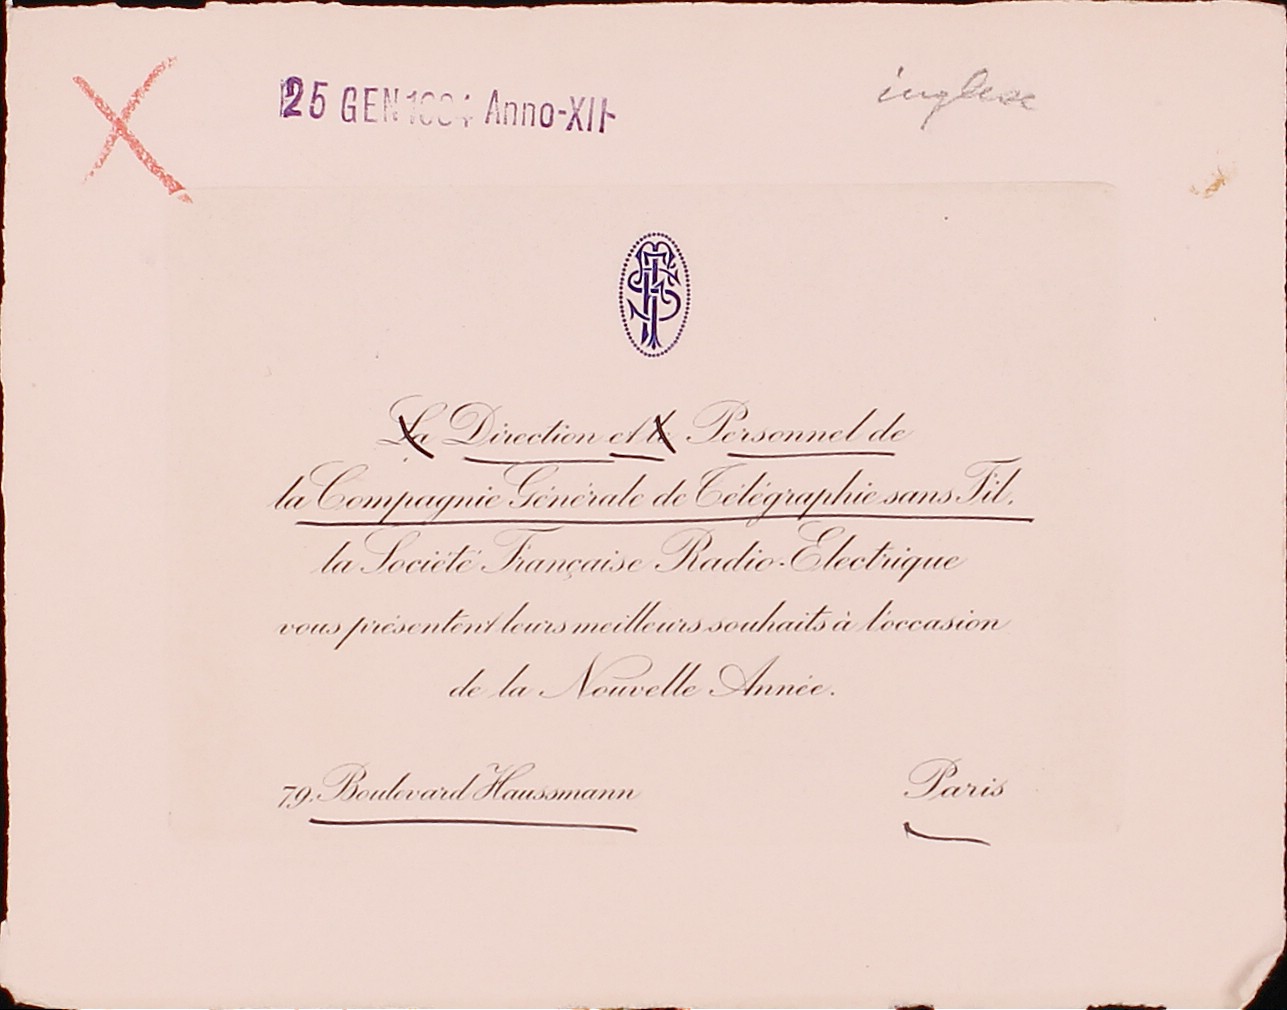 25 GEN 1934 Anno-XII
inglese
La Direction et le Personnel de
la Compagnie Générale de Télégraphie sans Fil.
la Société Française Radio-Electrique
vous présentent leurs meilleurs souhaits à l'occasion
de la Nouvelle Année.
79, Boulevard Haussmann Paris